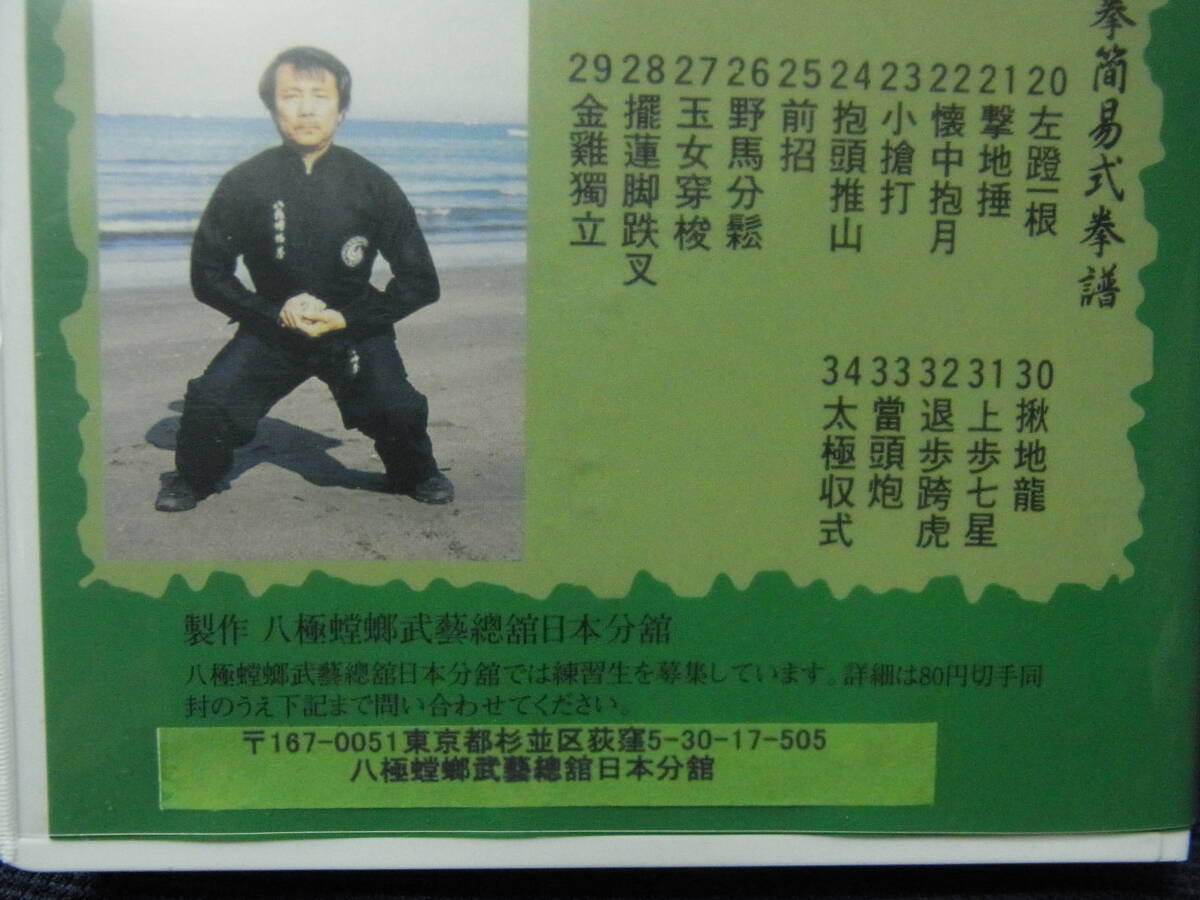 拳簡易式拳譜
20左蹬一根
21撃地捶
22懐中抱月
23小搶打
24抱頭推山
25前招
26野馬分鬆
27玉女穿梭
28擺蓮脚跌叉
29金雞獨立
30揪地龍
31上歩七星
32退歩跨虎
33當頭炮
34太極収式
製作 八極螳螂武藝總舘日本分舘
八極螳螂武藝總舘日本分舘では練習生を募集しています。詳細は80円切手同
封のうえ下記まで問い合わせてください。
〒167-0051東京都杉並区荻窪5-30-17-505
八極螳螂武藝總舘日本分舘